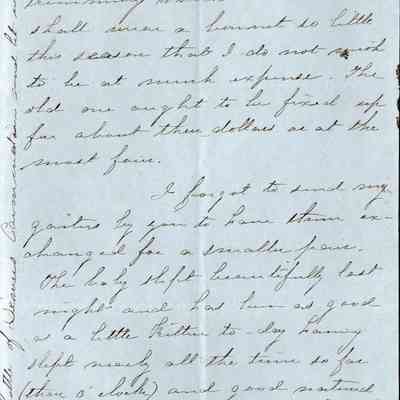 trimming
shall wear a bonnet so little
this season that I do not wish
to be at much expense. The
old one ought to be fixed up
for about three dollars or at the
most four.
I forgot to send my
gaiters by you to have them ex-
changed for a smaller pair.
The baby slept beautifully last
night and has been as good
as a little kitten to-day having
slept nearly all the time so far
(three o'clock) and good natured